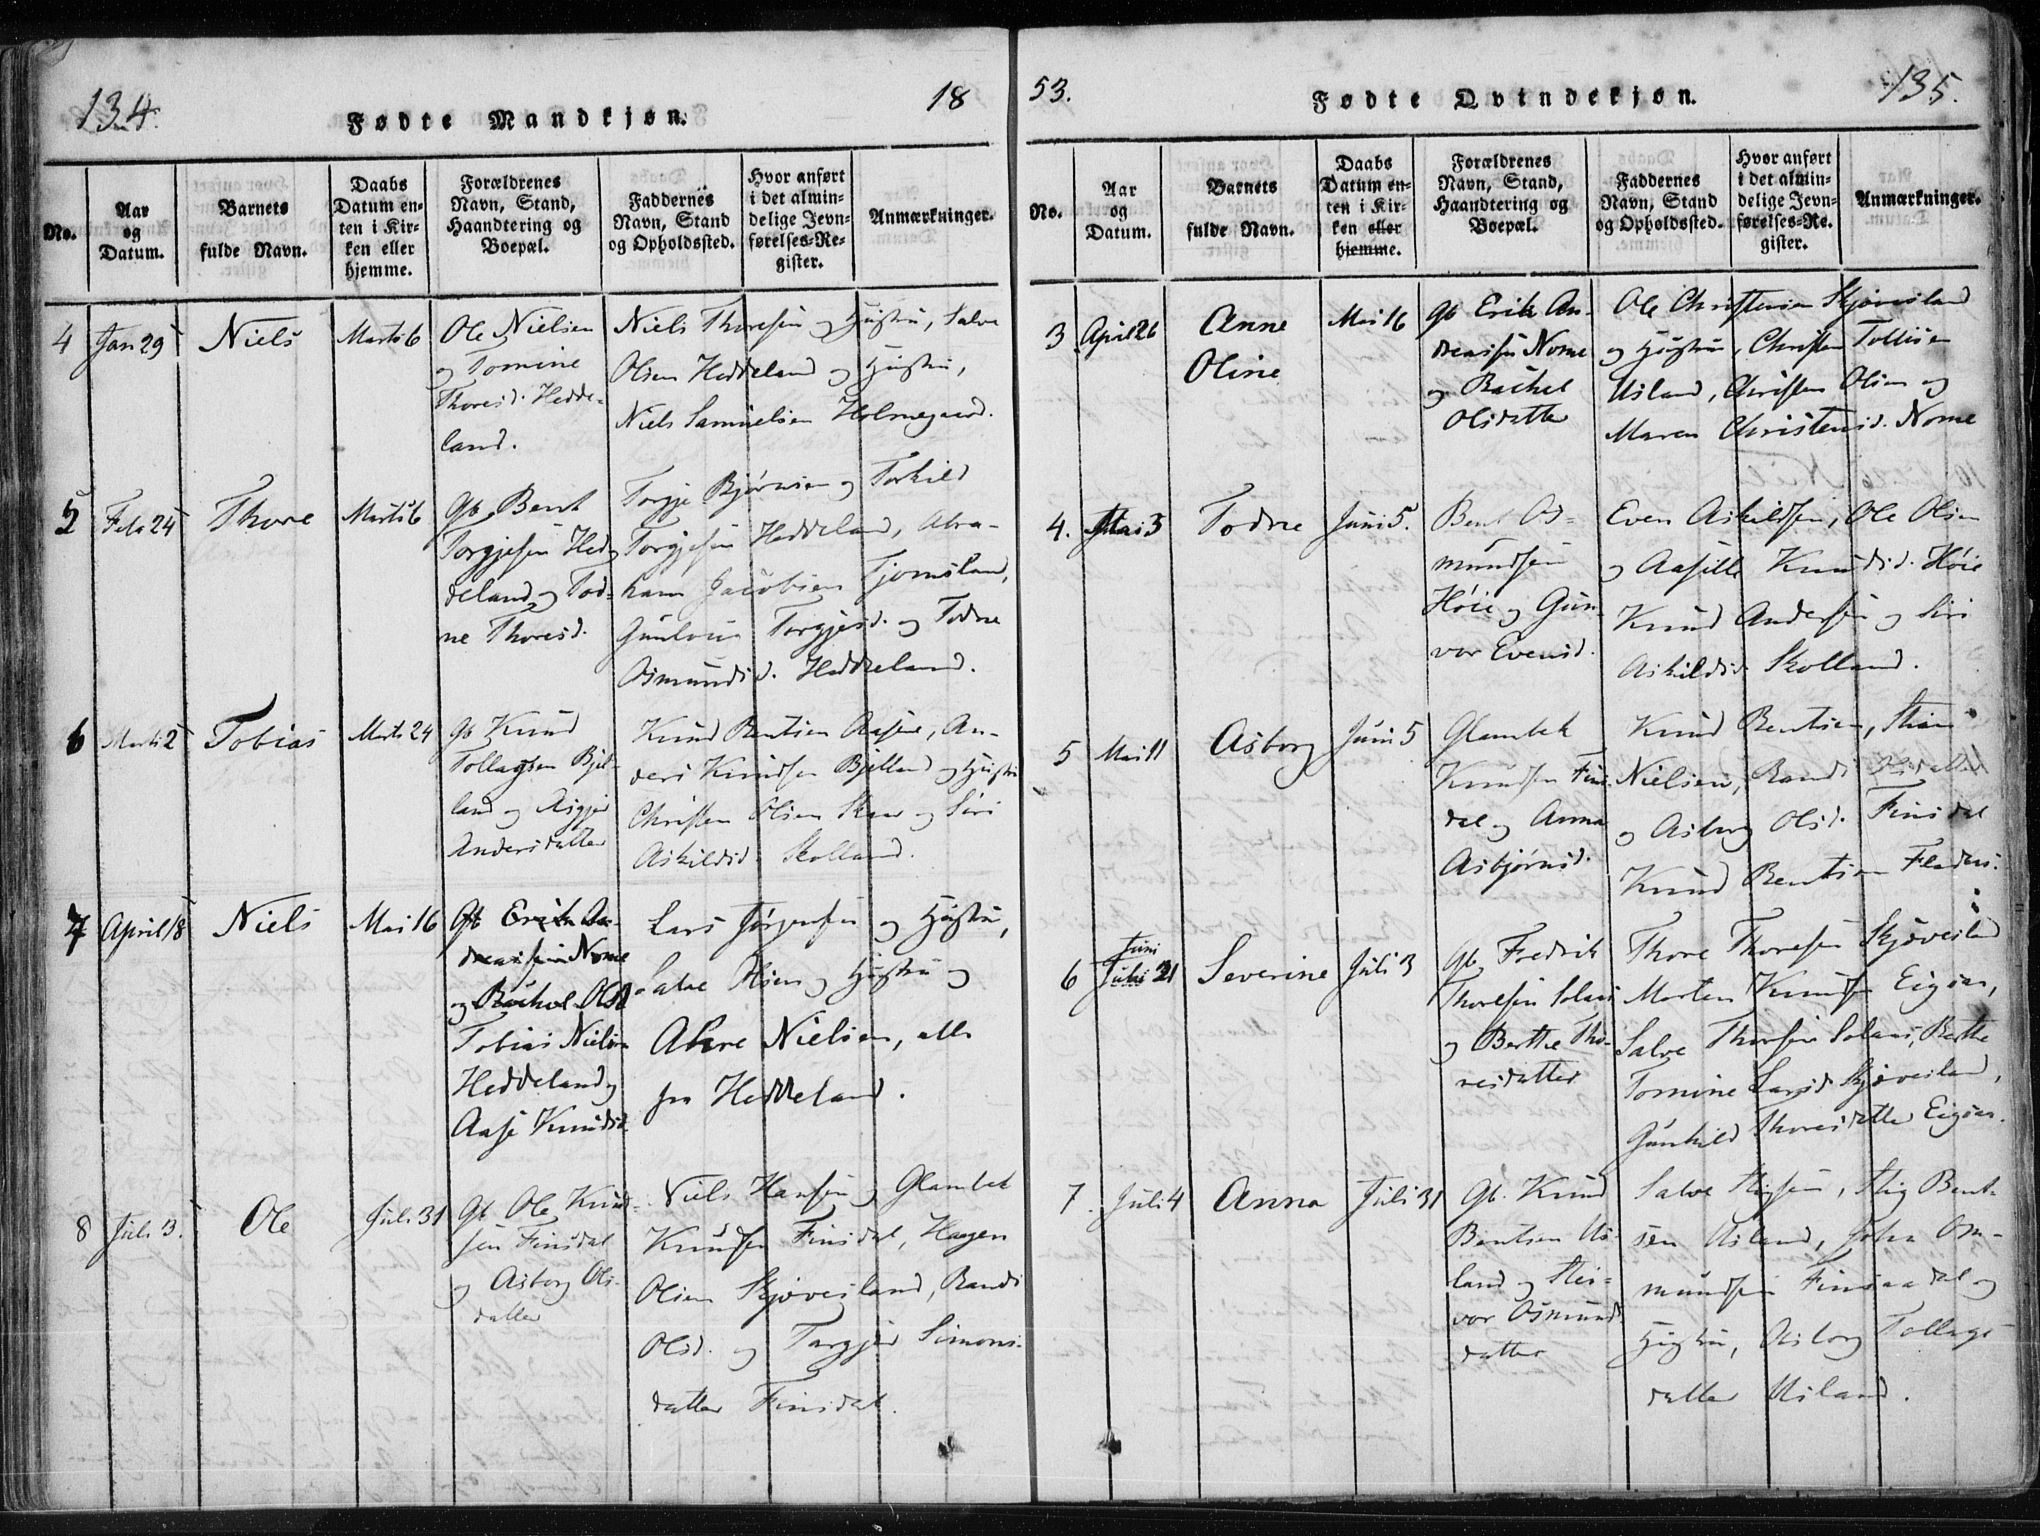 134.
18
Fødte Mandkjøn.
No.
Aar og Datum.
Barnets fulde Navn.
Daabs Datum enten i Kirken eller hjemme.
Forældrenes Navn, Stand, Haandtering og Boepæl.
Faddernes Navn, Stand og Opholdssted.
Hvor anført i det almindelige Jevnførelses-Register.
Anmærkninger.
4 Jan 29 Niels Marts 6
Ole Nielsen
og Tomine
Thoresd. Hedde-
land.
Niels Thoresen og Hustru, Salve
Olsen Heddeland og Hustru,
Niels Samuelsen Holmegaard.
5 Feb 24 Thore Marts 6
Gb. Bent
Torgjesen Hed-
deland og Tod-
ne Thoresd.
Torgje Bjørnsen og Torkild
Torgjesen Heddeland, Abra-
ham Jacobsen Tjomsland,
Gunlow Torgjesd. og Todne
Osmundsd. Heddeland.
6 Marts 2 Tobias Marts 24
Gb Knud
Tollagsen Bjel-
land og Asgjer
Andersdatter
Knud Bentsen, An-
ders Knudsen Bjelland og Hustru
Christen Olsen og Siri
Askildsd. Skolland.
7 April 18 Niels Mai 16
Gb. Erik An-
dreasen Nome
og Rachel Olsd
Tobias Nielsen
Heddeland og
Aase Knudsd.
Lars Jørgensen og Hustru,
Salve Olsen og Hustru og
Ahre Nielsen, alle
fra Heddeland.
8 Juli 3. Ole Juli 31
Gb Ole Knud-
sen Finsdal
og Asborg Ols-
datter
Niels Hansen og Glambek
Knudsen Finsdal, Haagen
Olsen Skjøvesland, Randi
Olsd. og Torgjer Simons-
datter Finsdal.
53.
135.
Fødte Qvindekjøn.
No.
Aar og Datum.
Barnets fulde Navn.
Daabs Datum enten i Kirken eller hjemme.
Forældrenes Navn, Stand, Haandtering og Boepæl.
Faddernes Navn, Stand og Opholdssted.
Hvor anført i det almindelige Jevnførelses-Register.
Anmærkninger.
3 April 26 Anne
Oline
Mai 16
Gb Erik An-
dreasen Nome
og Rachel
Olsdatter
Ole Christensen Skjøvesland
og Hustru, Christen Tollisen
Usland, Christen Olsen og
Maren Christensd. Nome
4. Mai 3 Todne Juni 5.
Bent Os-
mundsen
Høie og Gun-
vor Evensd.
Even Askildsen, Ole Olsen
og Aasille Knudsd. Høie
Knud Andersen og Siri
Askildsd. Skolland.
5 Mai 11 Asborg Juni 5
Glambek
Knudsen Fins-
dal og Anna
Asbjørnsd.
Knud Bentsen,
Nielsen, Randi Olsdatter
og Asborg Olsd. Finsdal
Knud Bentsen
6 Juni
Juli 21 Severine Juli 3
Gb. Fredrik
Thoresen Solaas
og Berthe Tho-
resdatter
Thore Thoresen Skjøvesland
Morten Knudsen Eigaas,
Salve Thoresen Solaas, Berthe
Tomine Larsd. Skjøvesland,
Gunhild Thoresdatter Eigaas.
7. Juli 4 Anna Juli 31
Gb. Knud
Bentsen Us-
land og Stei-
vor Osmunds
datter
Salve Stigsen, Stig Bent-
sen Usland, John Os-
mundsen Finsaadal og
Hustru, Asborg Tollags
datter Usland.